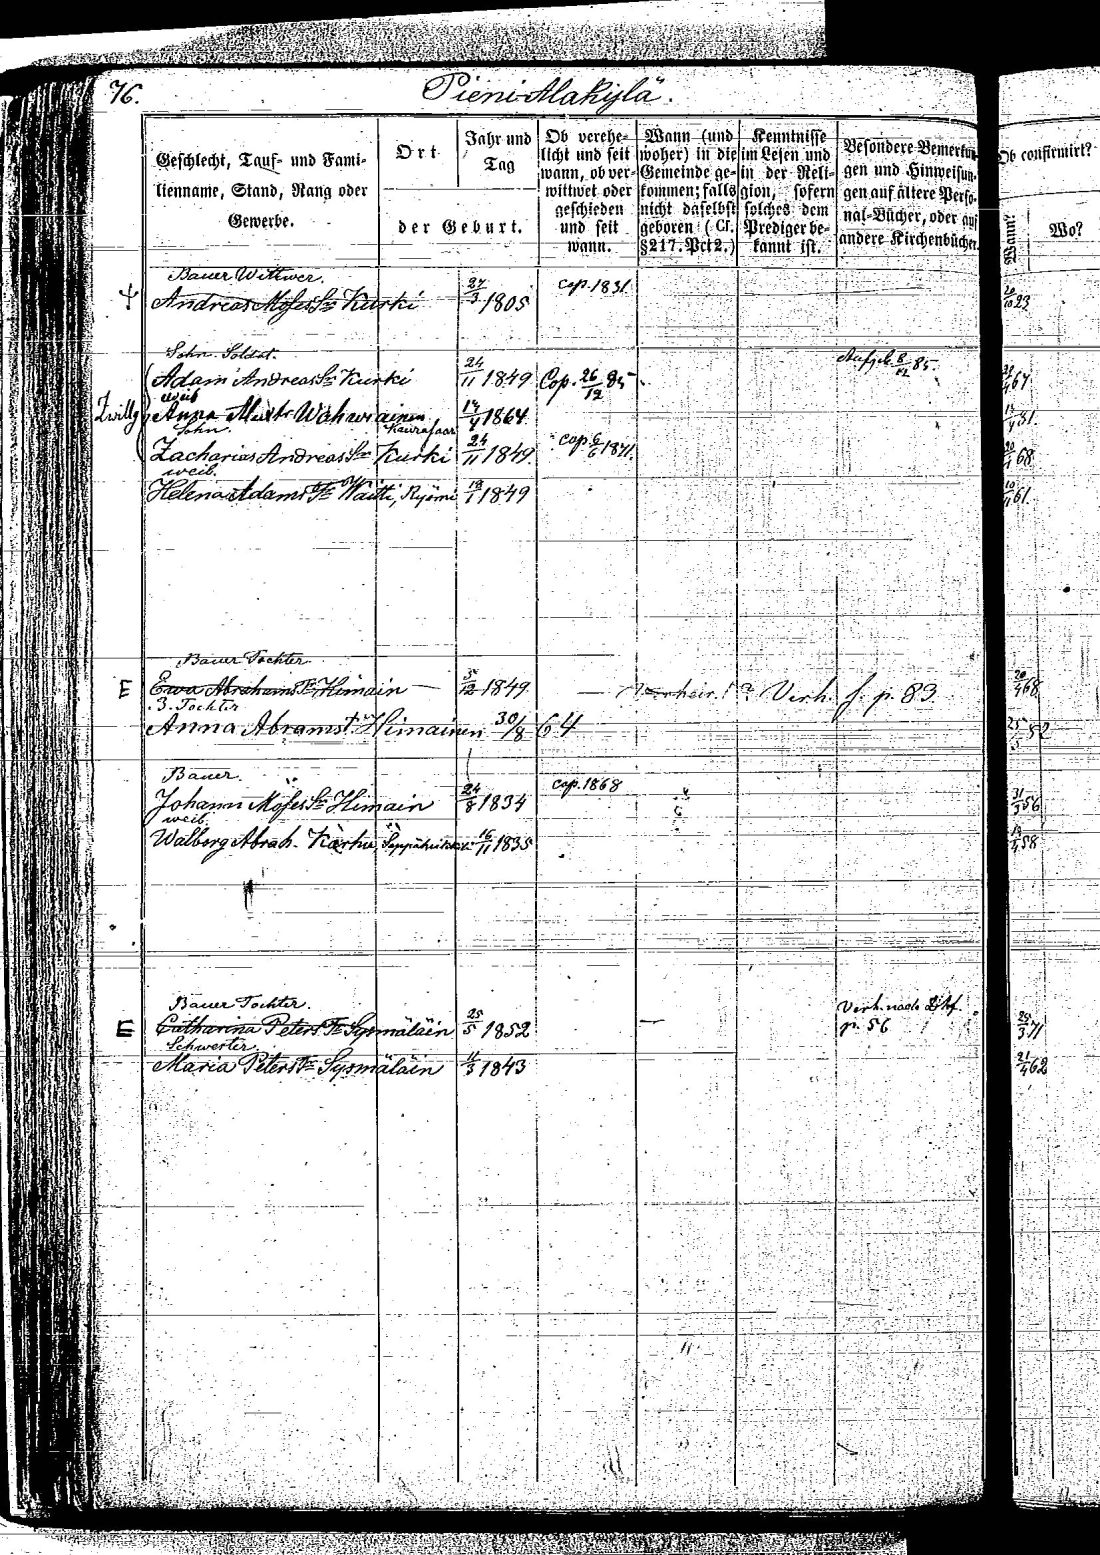 76.
Pieni Mäkylä.
Geschlecht, Tauf- und Fami-
lienname, Stand, Rang oder
Gewerbe.
Ort
der Geburt.
Jahr und
Tag
Ob verehe-
licht und seit
wann, ob ver-
wittwet oder
geschieden
und seit
wann.
Wann (und
woher) in die
Gemeinde ge-
kommen; falls
nicht daselbst
geboren (Cf.
§217. Pct 2.)
Kenntnisse
im Lesen und
in der Reli-
gion, sofern
solches dem
Prediger be-
kannt ist.
Besondere Bemerkun-
gen und Hinweisun-
gen auf ältere Perso-
nal-Bücher, oder auf
andere Kirchenbücher.
Ob confirmirt?
Wann?
Wo?
Bauer Wittwer.
Andreas Moses Sn Kurki 27/3 1805 cop. 1831 20/10 23
Sohn. Soldat.
Adam Andreas Sn Kurki 24/11 1849 Cop. 26/12 85 Aufgeb. 8/12 85. 67
Weib
Zwillg Anna 1864 81.
Sohn.
Zacharias Andreas Sn Kurki 24/11 1849. cop. 6/6 1871. 68
weib.
Helena Adams Tr Waitti, 1849 61.
Bauer Tochter
E Ewa Abrahams Tr Himäin 5/12 1849. Verh. f. p. 83. 20/4 68
3. Tochter
Anna Abramst. Himainen 30/8 64
Bauer.
Johann Moses Sn Himäin 24/8 1834 cop. 1868 31/3 56
weib.
Walborg Abrah. Karhu, 16/11 1835 58
Bauer Tochter.
E Catharina Peters Tr Sysmäläin 25/5 1852 Verh. nach
p. 56 25/3 71
Schwester.
Maria Peters Tr Sysmäläin 4/3 1843 21/4 62